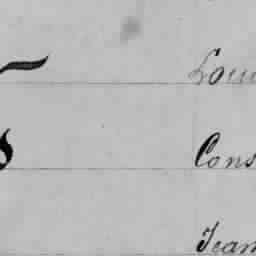 Loui
Cons
Jean